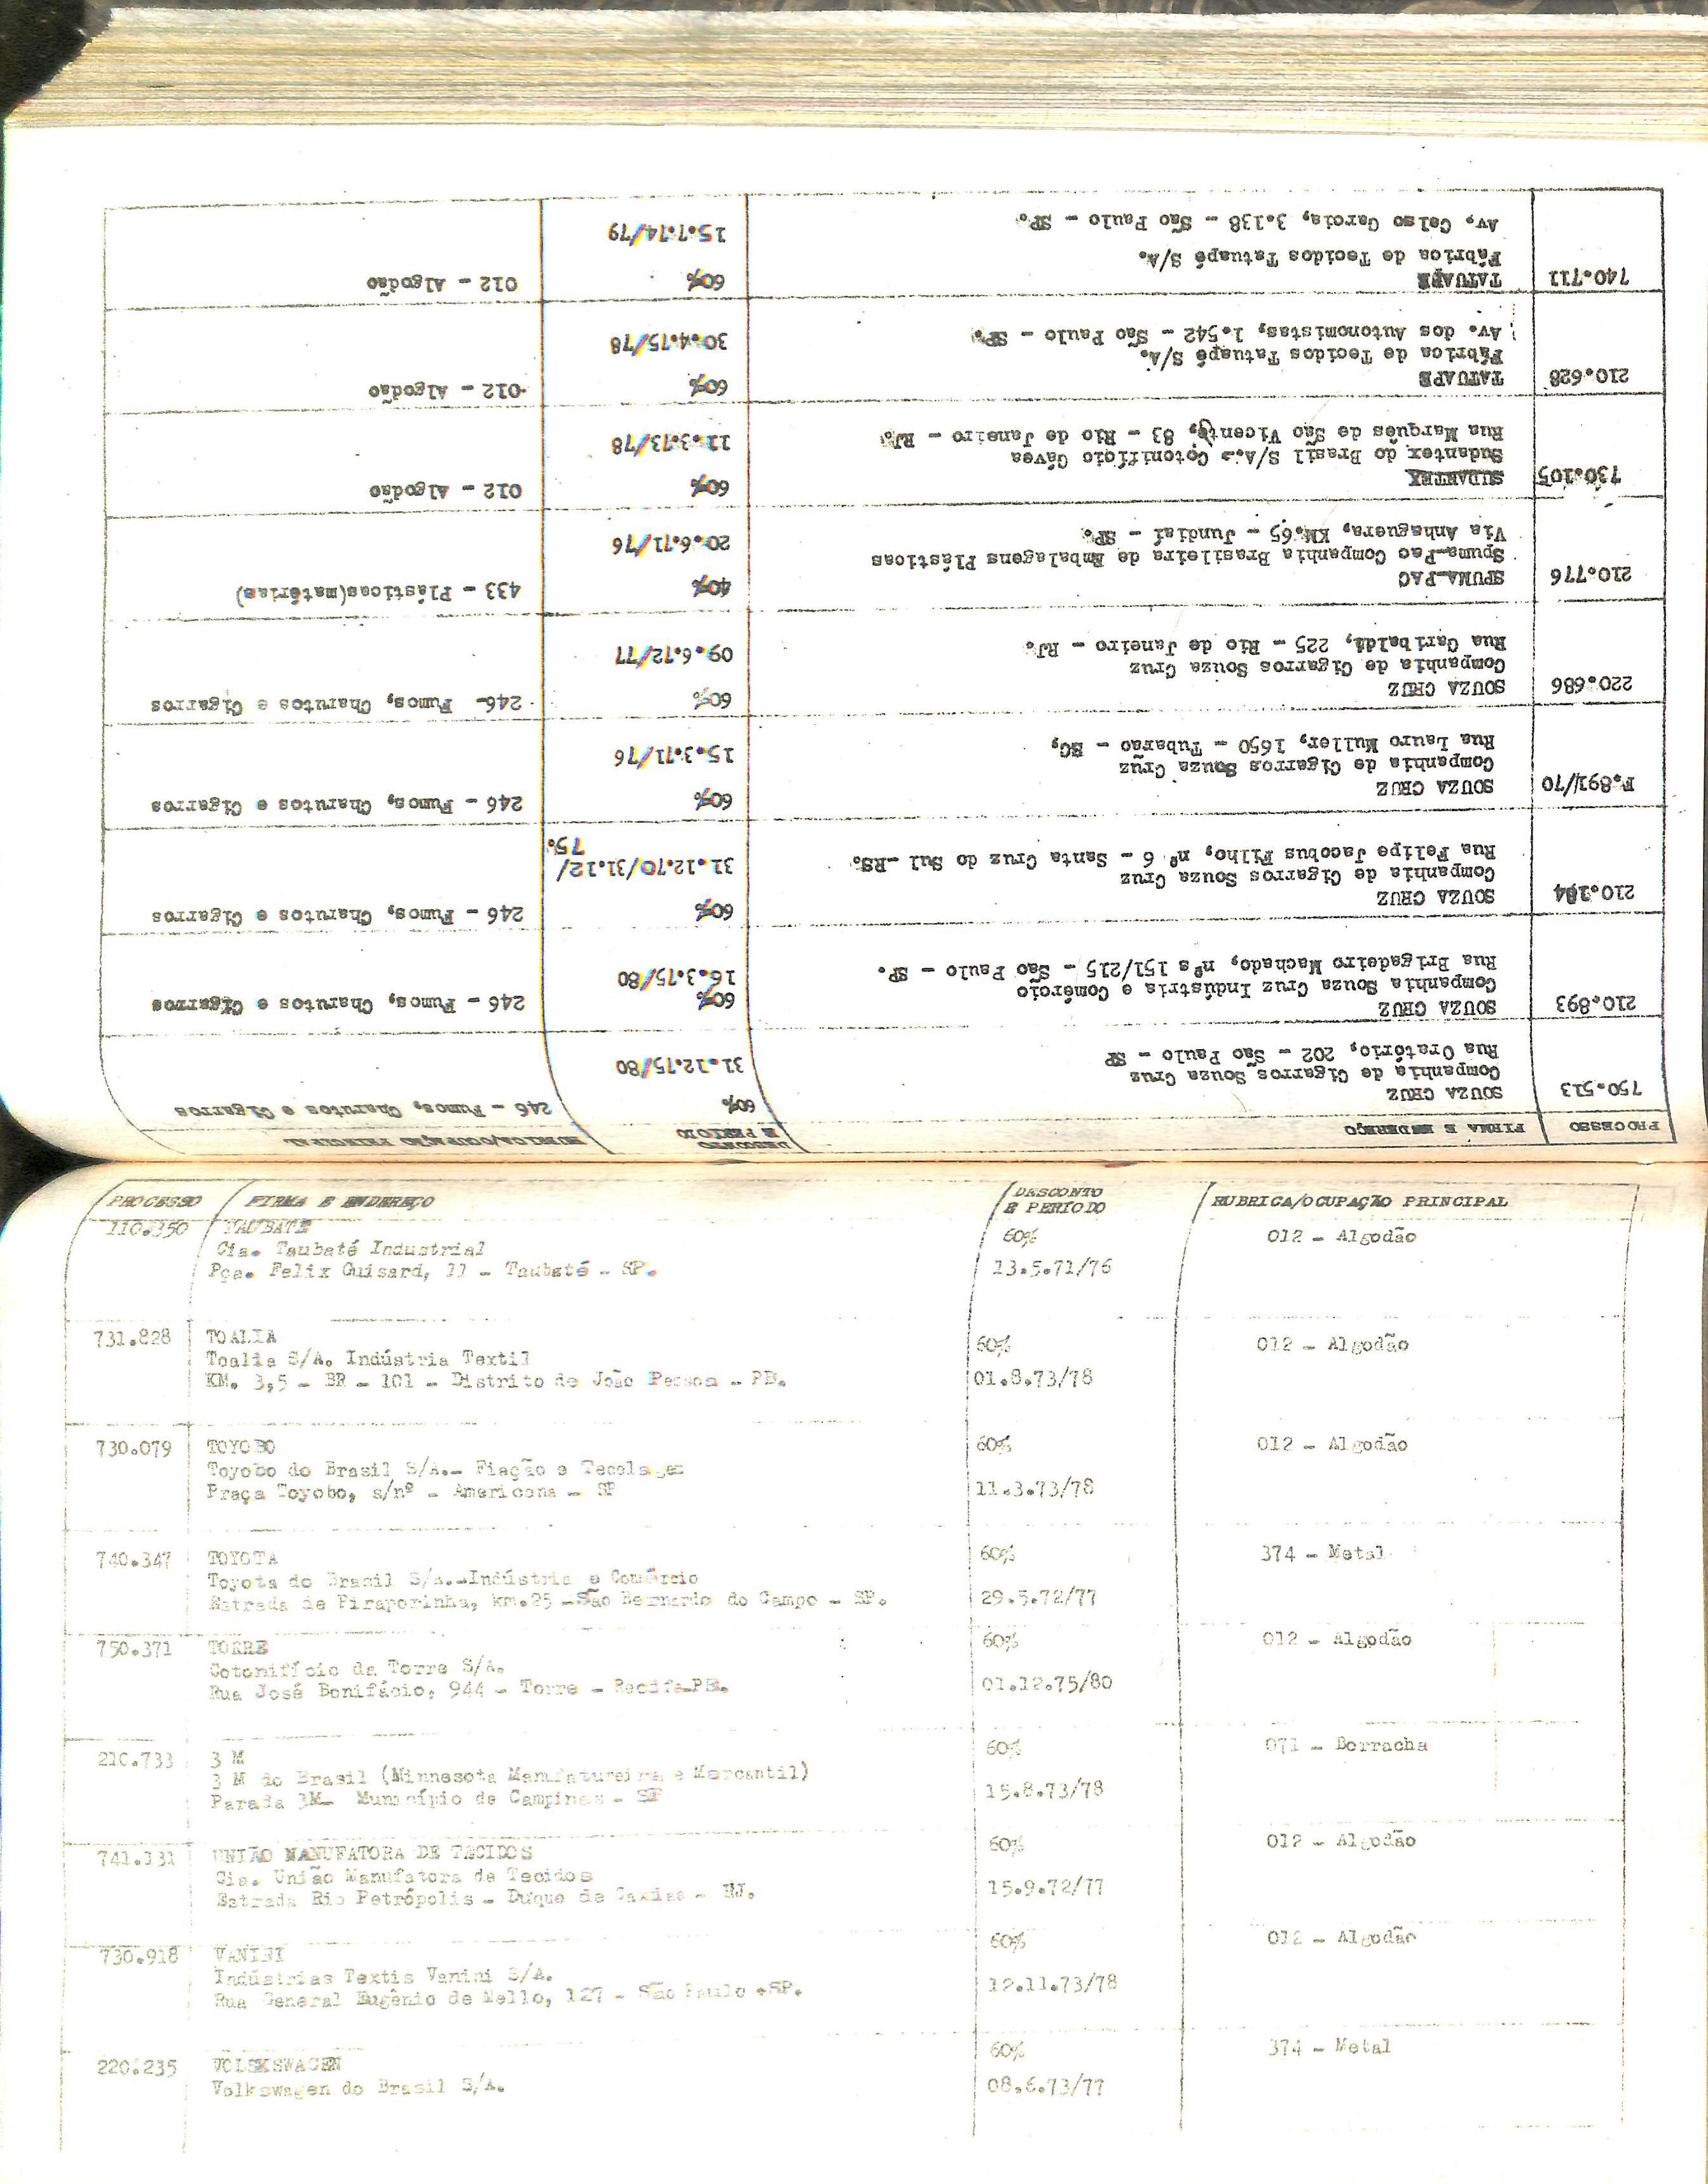 PROCESSO FIRMA E ENDEREÇO DESCONTO E PERÍODO RUBRICA/OCUPAÇÃO PRINCIPAL
750.513 SOUZA CRUZ 60% 246 - Fumos, Charutos e Cigarros
Companhia de Cigarros Souza Cruz
Rua Oratório, 202 - São Paulo - SP 31.12.75/80
210.893 SOUZA CRUZ 60% 246 - Fumos, Charutos e Cigarros
Companhia Souza Cruz Indústria e Comércio 16.3.75/80
Rua Brigadeiro Machado, nºs 151/215 - São Paulo - SP.
210.184 SOUZA CRUZ 60% 246 - Fumos, Charutos e Cigarros
Companhia de Cigarros Souza Cruz
Rua Felipe Jacobus Filho, nº 6 - Santa Cruz do Sul -RS. 31.12.70/31.12/
75.
F.891/70 SOUZA CRUZ 60% 246 - Fumos, Charutos e Cigarros
Companhia de Cigarros Souza Cruz
Rua Lauro Muller, 1650 - Tubarão - SC, 15.3.71/76
220.686 SOUZA CRUZ 60% 246- Fumos, Charutos e Cigarros
Companhia de Cigarros Souza Cruz
Rua Garibaldi, 225 - Rio de Janeiro - RJ. 09.6.72/77
210.776 SPUMA-PAC 40% 433 - Plásticas(matérias)
Spuma-Pac Companhia Brasileira de Embalagens Plásticas
Via Anhaguera, KM.65 - Jundiaí - SP. 20.6.71/76
730.105 SUDANTEX 60% 012 - Algodão
Sudantex do Brasil S/A.- Cotonifício Gávea
Rua Marquês de São Vicente, 83 - Rio de Janeiro - RJ. 11.3.73/78
210.628 TATUAPE 60% 012 - Algodão
Fábrica de Tecidos Tatuapé S/A.
Av. dos Autonomistas, 1.542 - São Paulo - SP. 30.4.75/78
740.711 TATUAPE 60% 012 - Algodão
Fábrica de Tecidos Tatuapé S/A.
Av. Celso Garcia, 3.138 - São Paulo - SP. 15.7.74/79
PROCESSO FIRMA E ENDEREÇO DESCONTO E PERÍODO RUBRICA/OCUPAÇÃO PRINCIPAL
110.350 TAUBATÉ 60% 012 - Algodão
Cia. Taubaté Industrial
Pça. Felix Guisard, 11 - Taubaté - SP. 13.5.71/76
731.828 TOALIA 60% 012 - Algodão
Toalia S/A. Indústria Textil
KM. 3,5 - BR - 101 - Distrito de João Pessoa - PB. 01.8.73/78
730.079 TOYOBO 60% 012 - Algodão
Toyobo do Brasil S/A.- Fiação e Tecelagem
Praça Toyobo, s/nº - Americana - SP 11.3.73/78
740.347 TOYOTA 60% 374 - Metal
Toyota do Brasil S/A.-Indústria e Comércio
Estrada de Piraporinha, km.25 -São Bernardo do Campo - SP. 29.5.72/77
750.371 TORRE 60% 012 - Algodão
Cotonifício da Torre S/A.
Rua José Bonifácio, 944 - Torre - Recife-PE. 01.12.75/80
210.733 3 M 60% 071 - Borracha
3 M do Brasil (Minnesota Manufatureira e Mercantil)
Parada 3M- Município de Campinas - SP 15.8.73/78
741.131 UNIÃO MANUFATORA DE TECIDOS 60% 012 - Algodão
Cia. União Manufatora de Tecidos
Estrada Rio Petrópolis - Duque de Caxias - RJ. 15.9.72/77
730.918 VANINI 60% 012 - Algodão
Indústrias Textis Vanini S/A.
Rua General Eugênio de Mello, 127 - São Paulo -SP. 12.11.73/78
220.235 VOLSKSWAGEN 60% 374 - Metal
Volkswagen do Brasil S/A. 08.6.73/77